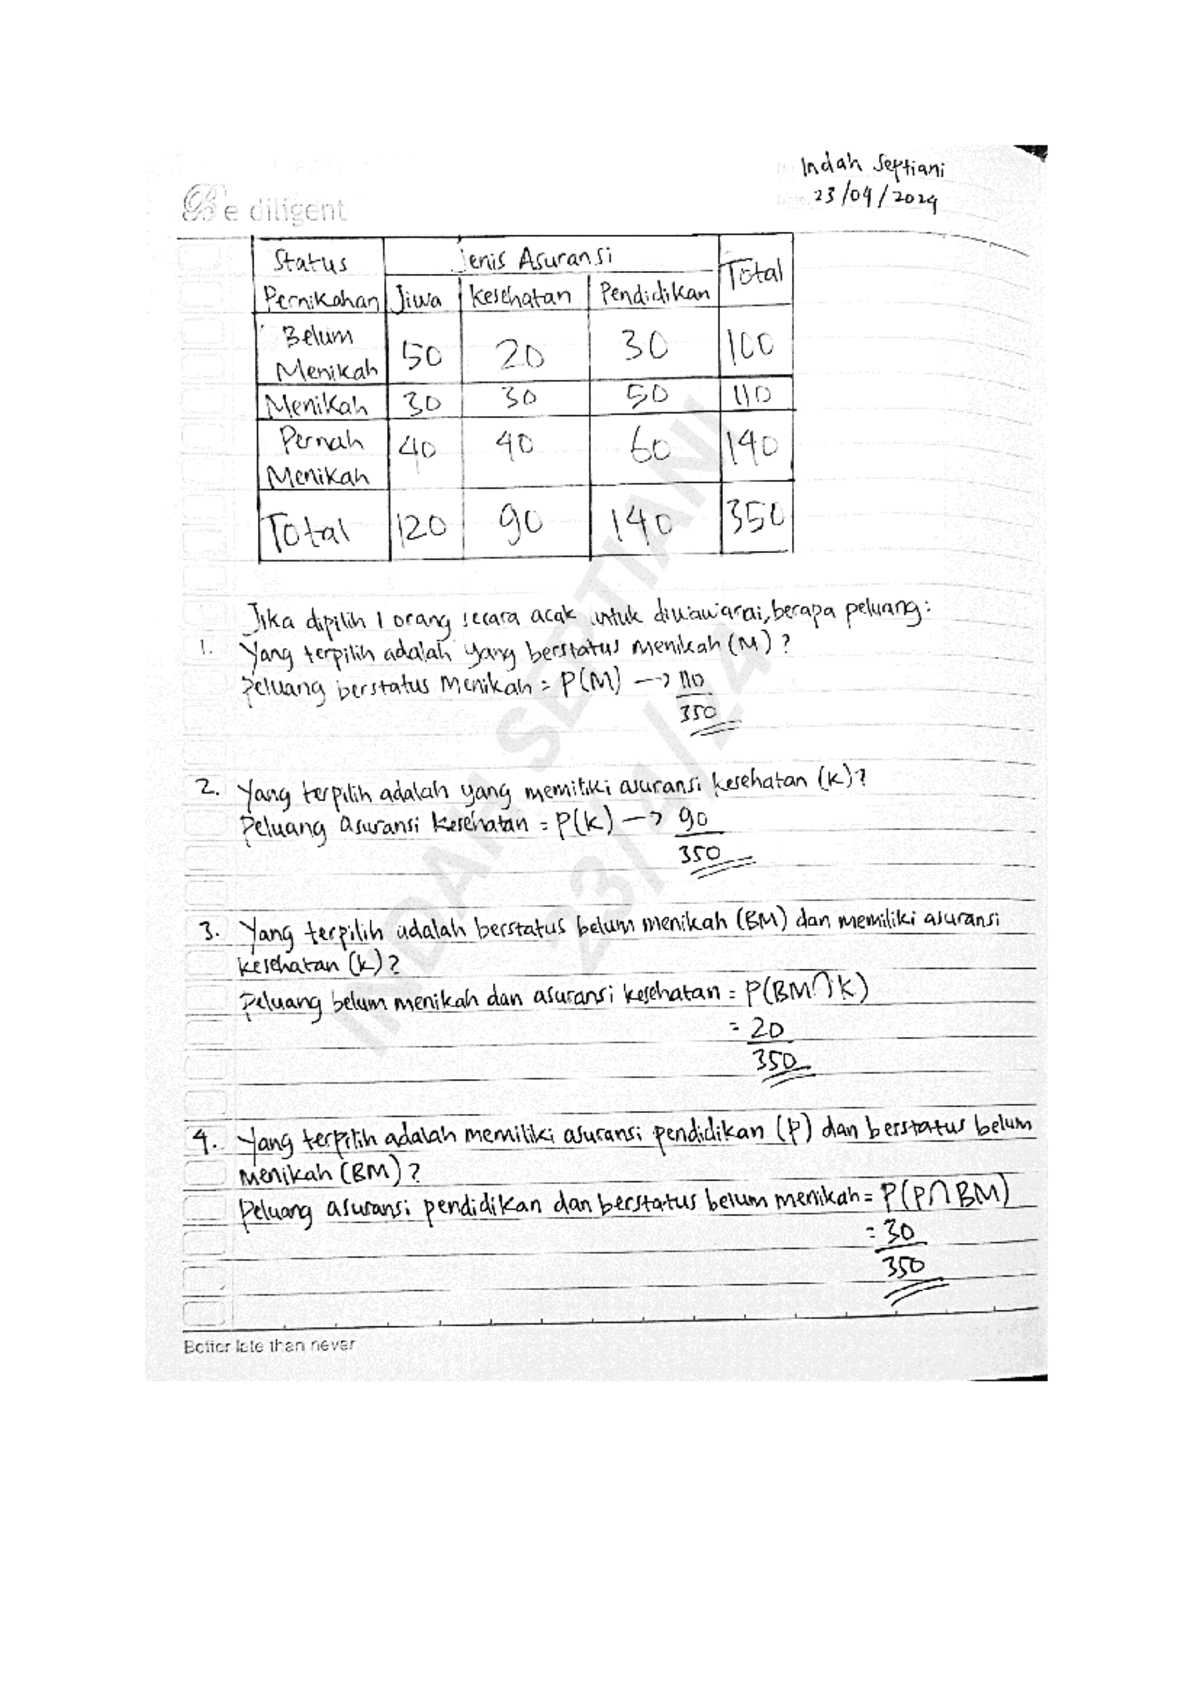 Indah Septiani
23/04/2024
Be diligent
Status Pernikahan | Jenis Asuransi | Total
Jiwa | Kesehatan | Pendidikan
Belum Menikah | 50 | 20 | 30 | 100
Menikah | 30 | 30 | 50 | 110
Pernah Menikah | 40 | 40 | 60 | 140
Total | 120 | 90 | 140 | 350
Jika dipilih 1 orang secara acak untuk diwawarai, berapa peluang:
1. Yang terpilih adalah yang berstatus menikah (M)?
Peluang berstatus Menikah = P(M) → 110
350
2. Yang terpilih adalah yang memiliki asuransi kesehatan (K)?
Peluang Asuransi Kesehatan = P(K) → 90
350
3. Yang terpilih adalah berstatus belum menikah (BM) dan memiliki asuransi
kesehatan (K)?
Peluang belum menikah dan asuransi kesehatan = P(BM∩K)
= 20
350
4. Yang terpilih adalah memiliki asuransi pendidikan (P) dan berstatus belum
menikah (BM)?
Peluang asuransi pendidikan dan berstatus belum menikah = P(P∩BM)
= 30
350
Better late than never
INDAH SEPTIANI
23/4/24